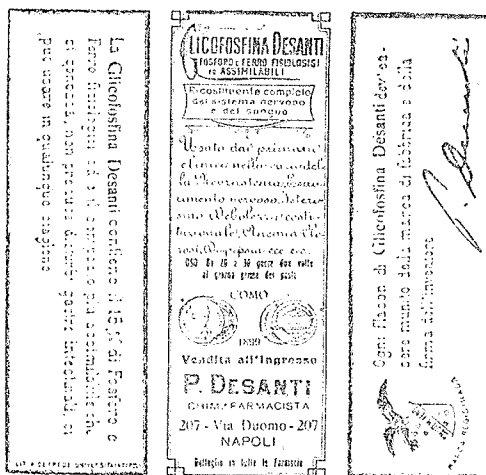 La Glicofosfina Desanti contiene il 15 % di Fosforo e
Ferro fisiologici ed è il
si conosca, non produce disturbi gastro intestinali, si
può usare in qualunque stagione
GLICOFOSFINA DESANTI
FOSFORO E FERRO FISIOLOGICI
ED ASSIMILABILI
Ricostituente completo
del sistema nervoso
e del sangue
Usato dai primari
clinici nella cura del
la Nevrastenia, Esauri
mento nervoso, Isteri
smo, Debolezza costi
tuzionale, Anemia, Clo
rosi, ecc. ecc.
USO Da 20 a 30 gocce due volte
al giorno prima dei pasti
COMO
1899
Vendita all'Ingrosso
P. DESANTI
CHIM.° FARMACISTA
207 - Via Duomo - 207
NAPOLI
Dettaglio in tutte le Farmacie
Ogni flacon di Glicofosfina Desanti dev'es-
sere munito della marca di fabbrica e della
firma dell'inventore
P. Desanti
MARCA REGISTRATA